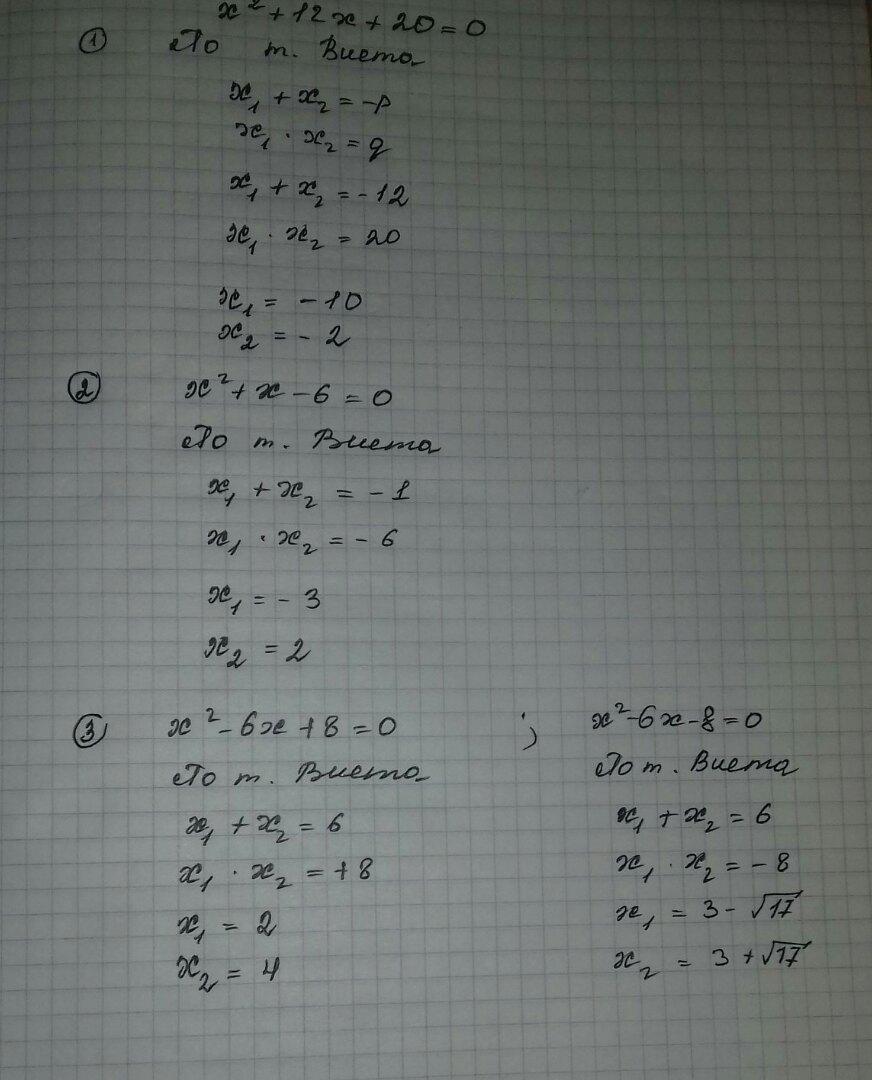 x² + 12x + 20 = 0
① По т. Виета
x₁ + x₂ = -p
x₁ · x₂ = q
x₁ + x₂ = -12
x₁ · x₂ = 20
x₁ = -10
x₂ = -2
② x² + x - 6 = 0
По т. Виета
x₁ + x₂ = -1
x₁ · x₂ = -6
x₁ = -3
x₂ = 2
③ x² - 6x + 8 = 0 ;
По т. Виета
x₁ + x₂ = 6
x₁ · x₂ = +8
x₁ = 2
x₂ = 4
x² - 6x - 8 = 0
По т. Виета
x₁ + x₂ = 6
x₁ · x₂ = -8
x₁ = 3 - √17
x₂ = 3 + √17